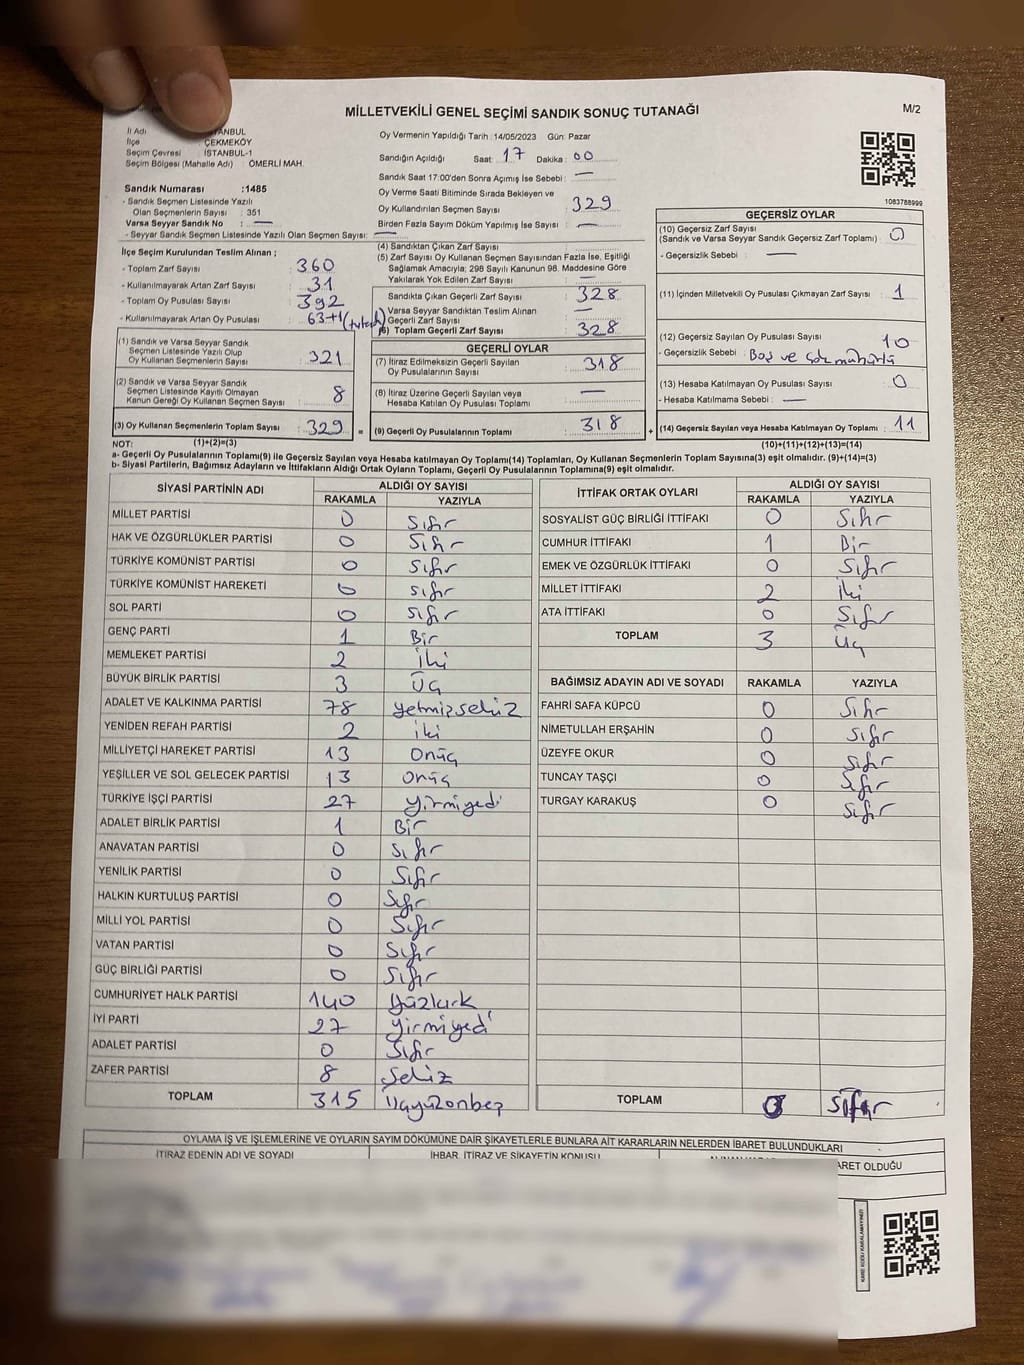 MİLLETVEKİLİ GENEL SEÇİMİ SANDIK SONUÇ TUTANAĞI
M/2
İl Adı STANBUL
İlçe ÇEKMEKÖY
Seçim Çevresi : İSTANBUL-1
Seçim Bölgesi (Mahalle Adı) : ÖMERLİ MAH.
Sandık Numarası :1485
- Sandık Seçmen Listesinde Yazılı
Olan Seçmenlerin Sayısı : 351
Varsa Seyyar Sandık No : —
- Seyyar Sandık Seçmen Listesinde Yazılı Olan Seçmen Sayısı: —
Oy Vermenin Yapıldığı Tarih :14/05/2023 Gün: Pazar
Sandığın Açıldığı Saat: 17 Dakika : 00
Sandık Saat 17:00'den Sonra Açımış İse Sebebi : —
Oy Verme Saati Bitiminde Sırada Bekleyen ve
Oy Kullandırılan Seçmen Sayısı : 329
Birden Fazla Sayım Döküm Yapılmış İse Sayısı : —
1083788999
İlçe Seçim Kurulundan Teslim Alınan ;
- Toplam Zarf Sayısı : 360
- Kullanılmayarak Artan Zarf Sayısı : 31
- Toplam Oy Pusulası Sayısı : 392
- Kullanılmayarak Artan Oy Pusulası : 63+1
(1) Sandık ve Varsa Seyyar Sandık
Seçmen Listesinde Yazılı Olup
Oy Kullanan Seçmenlerin Sayısı : 321
(2) Sandık ve Varsa Seyyar Sandık
Seçmen Listesinde Kayıtlı Olmayan
Kanun Gereği Oy Kullanan Seçmen Sayısı : 8
(3) Oy Kullanan Seçmenlerin Toplam Sayısı : 329 =
(1)+(2)=(3)
(4) Sandıktan Çıkan Zarf Sayısı :
(5) Zarf Sayısı Oy Kullanan Seçmen Sayısından Fazla İse, Eşitliği
Sağlamak Amacıyla; 298 Sayılı Kanunun 98. Maddesine Göre
Yakılarak Yok Edilen Zarf Sayısı : —
Sandıkta Çıkan Geçerli Zarf Sayısı : 328
Varsa Seyyar Sandıktan Teslim Alınan
Geçerli Zarf Sayısı : —
(6) Toplam Geçerli Zarf Sayısı : 328
GEÇERLİ OYLAR
(7) İtiraz Edilmeksizin Geçerli Sayılan
Oy Pusulalarının Sayısı : 318
(8) İtiraz Üzerine Geçerli Sayılan veya
Hesaba Katılan Oy Pusulası Toplamı : —
(9) Geçerli Oy Pusulalarının Toplamı : 318 +
GEÇERSİZ OYLAR
(10) Geçersiz Zarf Sayısı
(Sandık ve Varsa Seyyar Sandık Geçersiz Zarf Toplamı) : 0
- Geçersizlik Sebebi : —
(11) İçinden Milletvekili Oy Pusulası Çıkmayan Zarf Sayısı : 1
(12) Geçersiz Sayılan Oy Pusulası Sayısı : 10
- Geçersizlik Sebebi : Boş ve çok mühürlü
(13) Hesaba Katılmayan Oy Pusulası Sayısı : 0
- Hesaba Katılmama Sebebi : —
(14) Geçersiz Sayılan veya Hesaba Katılmayan Oy Toplamı : 11
(10)+(11)+(12)+(13)=(14)
NOT:
a- Geçerli Oy Pusulalarının Toplamı(9) ile Geçersiz Sayılan veya Hesaba Katılmayan Oy Toplamı(14) Toplamları, Oy Kullanan Seçmenlerin Toplam Sayısına(3) eşit olmalıdır. (9)+(14)=(3)
b- Siyasi Partilerin, Bağımsız Adayların ve İttifakların Aldığı Ortak Oyların Toplamı, Geçerli Oy Pusulalarının Toplamına(9) eşit olmalıdır.
SİYASİ PARTİNİN ADI ALDIĞI OY SAYISI
RAKAMLA YAZIYLA
MİLLET PARTİSİ 0 Sıfır
HAK VE ÖZGÜRLÜKLER PARTİSİ 0 Sıfır
TÜRKİYE KOMÜNİST PARTİSİ 0 sıfır
TÜRKİYE KOMÜNİST HAREKETİ 0 sıfır
SOL PARTİ 0 sıfır
GENÇ PARTİ 1 Bir
MEMLEKET PARTİSİ 2 iki
BÜYÜK BİRLİK PARTİSİ 3 Üç
ADALET VE KALKINMA PARTİSİ 78 yetmişsekiz
YENİDEN REFAH PARTİSİ 2 iki
MİLLİYETÇİ HAREKET PARTİSİ 13 Onüç
YEŞİLLER VE SOL GELECEK PARTİSİ 13 Onüç
TÜRKİYE İŞÇİ PARTİSİ 27 yirmiyedi
ADALET BİRLİK PARTİSİ 1 Bir
ANAVATAN PARTİSİ 0 sıfır
YENİLİK PARTİSİ 0 Sıfır
HALKIN KURTULUŞ PARTİSİ 0 Sıfır
MİLLİ YOL PARTİSİ 0 Sıfır
VATAN PARTİSİ 0 Sıfır
GÜÇ BİRLİĞİ PARTİSİ 0 Sıfır
CUMHURİYET HALK PARTİSİ 140 yüzkırk
İYİ PARTİ 27 yirmiyedi
ADALET PARTİSİ 0 Sıfır
ZAFER PARTİSİ 8 Sekiz
TOPLAM 315 üçyüzonbeş
İTTİFAK ORTAK OYLARI ALDIĞI OY SAYISI
RAKAMLA YAZIYLA
SOSYALİST GÜÇ BİRLİĞİ İTTİFAKI 0 Sıfır
CUMHUR İTTİFAKI 1 Bir
EMEK VE ÖZGÜRLÜK İTTİFAKI 0 Sıfır
MİLLET İTTİFAKI 2 iki
ATA İTTİFAKI 0 Sıfır
TOPLAM 3 Üç
BAĞIMSIZ ADAYIN ADI VE SOYADI RAKAMLA YAZIYLA
FAHRİ SAFA KÜPCÜ 0 Sıfır
NİMETULLAH ERŞAHİN 0 sıfır
ÜZEYFE OKUR 0 sıfır
TUNCAY TAŞÇI 0 sıfır
TURGAY KARAKUŞ 0 sıfır
TOPLAM Sıfır
OYLAMA İŞ VE İŞLEMLERİNE VE OYLARIN SAYIM DÖKÜMÜNE DAİR ŞİKAYETLERLE BUNLARA AİT KARARLARIN NELERDEN İBARET BULUNDUKLARI
İTİRAZ EDENİN ADI VE SOYADI İHBAR, İTİRAZ VE ŞİKAYETİN KONUSU ARET OLDUĞU
KARE KODU KARALAMAYINIZ!